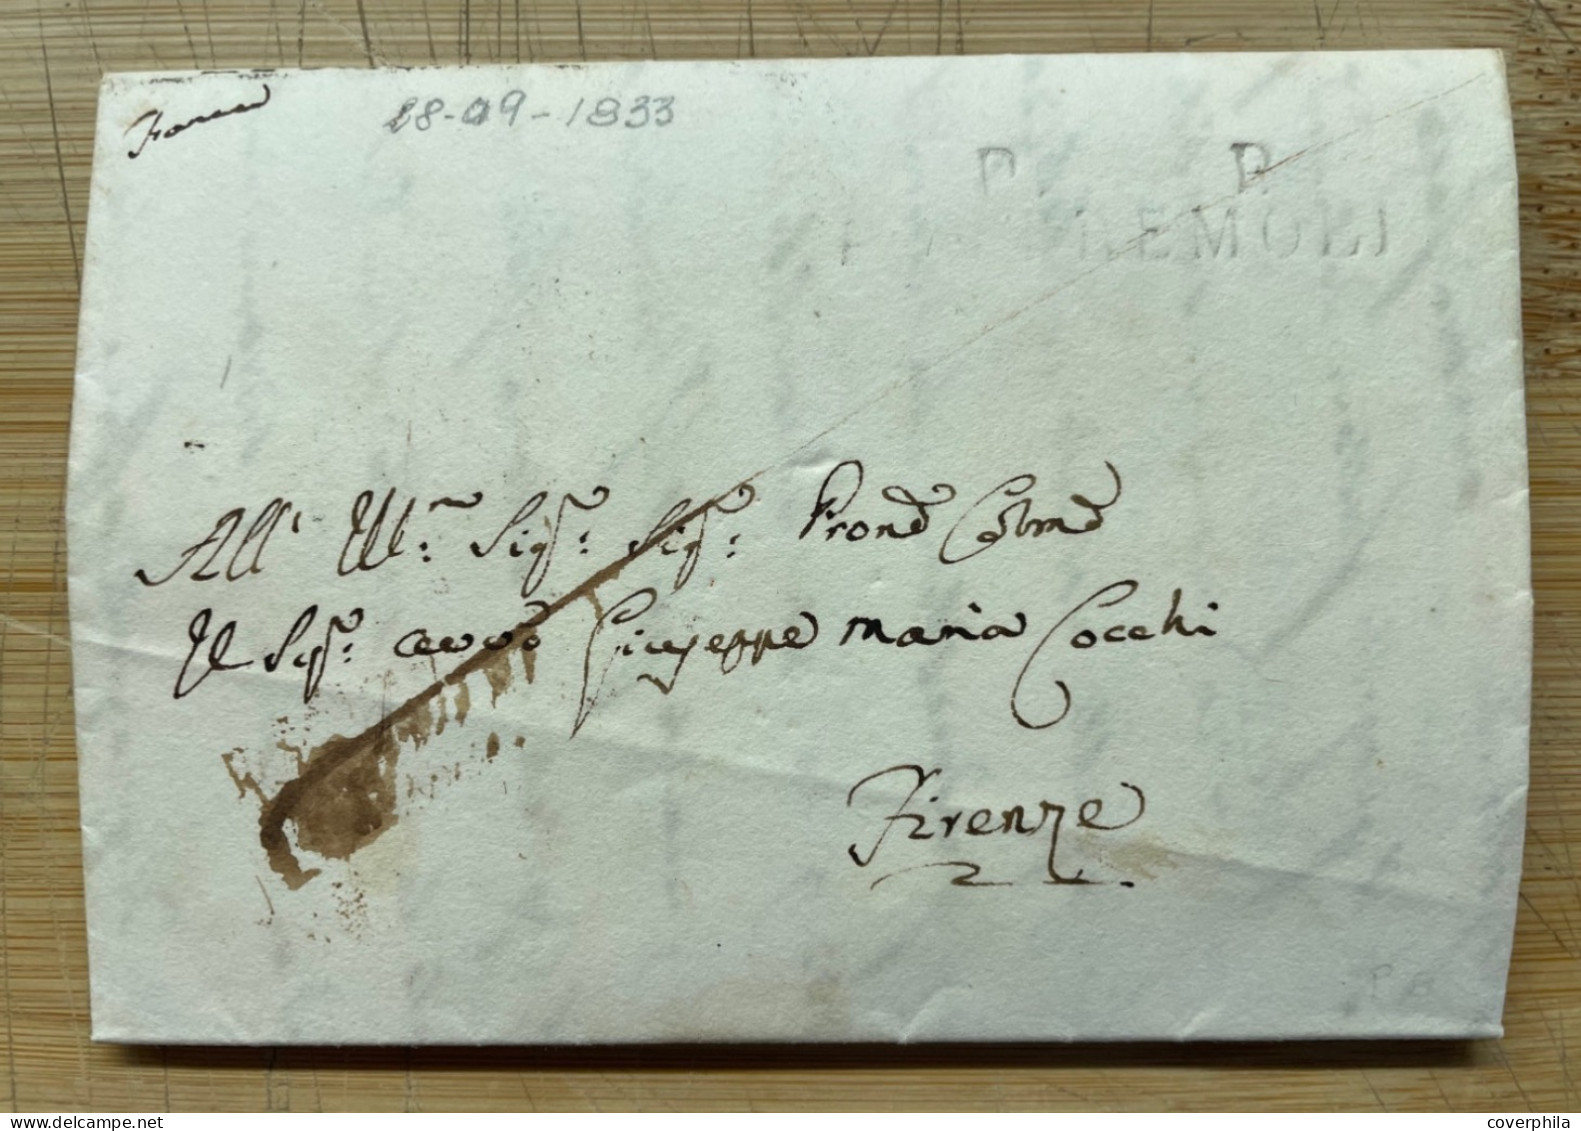 Franca
28-09-1833
P. P.
REMOLI
All' Ill.mo Sig.r Sig.r Prone Colmo
Il Sig.r Giuseppe Maria Cocchi
Firenze
P B
coverphila